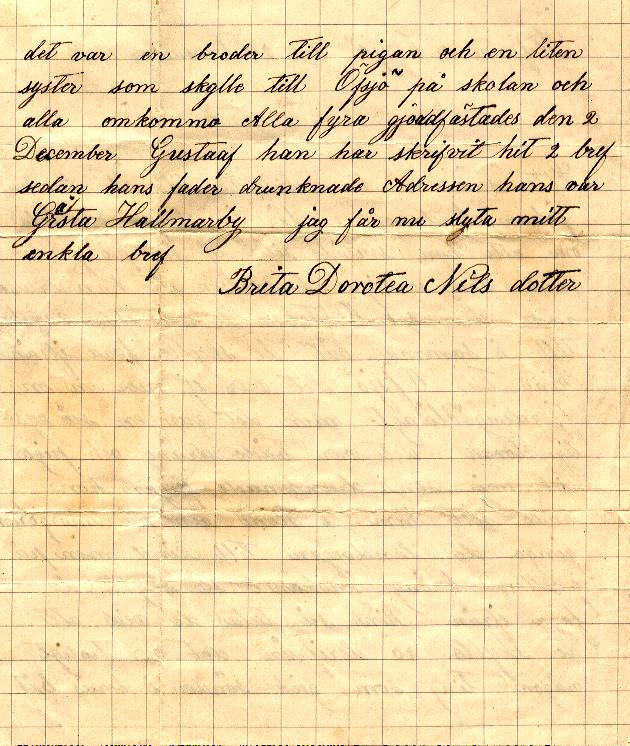 det var en broder till pigan och en liten
syster som skylle till Öfsjö på skolan och
alla omkommo Alla fyra gjordfästades den 2
December Gustaaf han har skrifvit hit 2 bref
sedan hans fader drunknade Adressen hans var
Gåsta Hallmarby jag får nu slyta mitt
enkla bref
Brita Dorotea Nils dotter